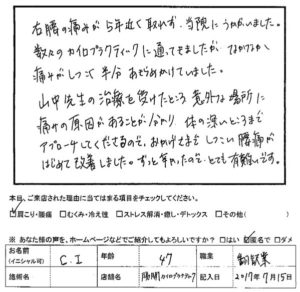 右腰の痛みが5年近く取れず、当院にうかがいました。
数々のカイロプラクティックに通ってきましたがなかなか
痛みがしつこく半分あきらめかけていました。
山中先生の治療を受けたところ意外な場所に
痛みの原因があることが分かり 体の深いところまで
アプローチしてくださるので、おかげさまでしつこい腰痛が
はじめて改善しました。ずっと辛かったのでとても有難いです。
本日、ご来店された理由に当てはまる項目をチェックしてください。
☑肩こり・腰痛 □むくみ・冷え性 □ストレス解消・癒し・デトックス □その他( )
※ あなた様の声を、ホームページなどでご紹介してもよろしいですか? □はい ☑匿名で □ダメ
お名前 (イニシャル可) C.I 年齢 47 職業 翻訳業
施術名 店舗名 カイロプラクティック 記入日 2017年7月15日